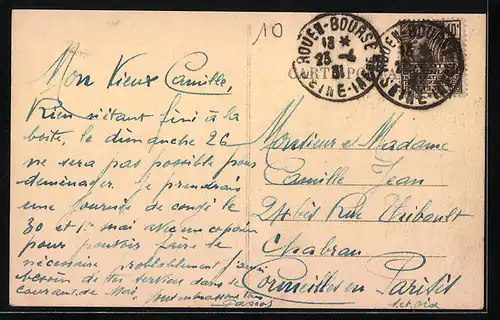 10
ROUEN-BOURSE
13 *
23 -4
31
SEINE-INFRE
CARTE PO
ROUEN-BOURSE
SEINE-IN
10c
Mon Vieux Camille,
Rien n'étant fini à la
boîte, le dimanche 26
ne sera pas possible pour
déménager. Je prendrais
une journée de congé le
30 et 1er mai avec un copain
pour pouvoir faire le
nécessaire probablement j'aurai
besoin de tes services dans le
courant de Mai.
Monsieur et Madame
Camille Jean
24 bis Rue Thibault
Chabran
Cormeilles en Parisis
Set oise